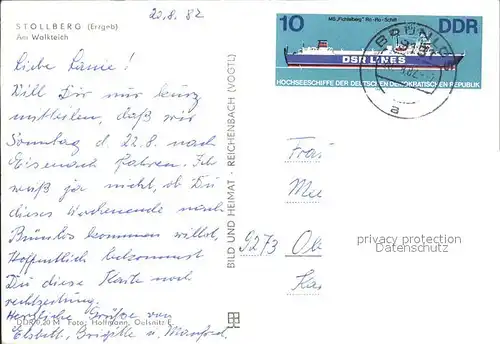 20.8.82
STOLLBERG (Errgeb)
Am Walkteich
Liebe
Will Dir nur kurz
mitteilen, daß wir
Sonntag d. 22.8. nach
Eisenach fahren. Ich
weiß ja nicht, ob Du
dieses Wochenende nach
Brünlos kommen willst,
Hoffentlich bekommst
Du diese Karte noch
rechtzeitig.
Herzliche Grüße von
Elsbeth, Brigitte u. Manfred.
DDR 0,20 M Foto: Hoffmann, Oelsnitz E.
BILD UND HEIMAT - REICHENBACH (VOGTL)
10 MS „Fichtelberg“ Ro-Ro-Schiff DDR
DSR LINES
HOCHSEESCHIFFE DER DEUTSCHEN DEMOKRATISCHEN REPUBLIK
BRÜNLOS
a
Frau
9273
privacy protection
Datenschutz